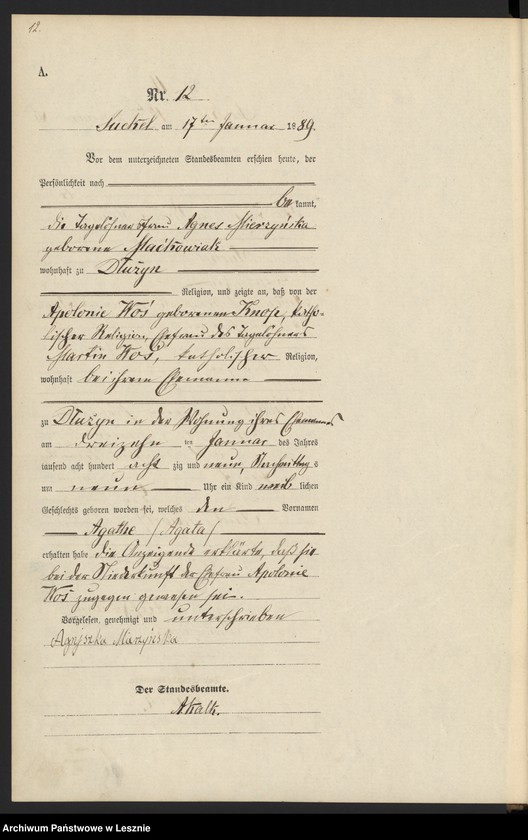 12.
A.
Nr. 12
am 17ten Januar 1889.
Vor dem unterzeichneten Standesbeamten erschien heute, der
Persönlichkeit nach
be kannt,
die Tagelöhnerfrau Agnes Mierzyńska
geborene Maćkowiak
wohnhaft zu Dłużyn
Religion, und zeigte an, daß von der
Apolonie Woś geborenen Knop, katho-
lischer Religion, Ehefrau des Tagelöhners
Martin Woś, katholischer Religion,
wohnhaft bei ihrem Ehemanne
zu Dłużyn in der Wohnung ihres Ehemannes
am dreizehn ten Januar des Jahres
tausend acht hundert acht zig und neun, Vormittag s
um neun Uhr ein Kind weib lichen
Geschlechts geboren worden sei, welches den Vornamen
Agathe (Agata)
erhalten habe die Anzeigende erklärte, daß sie
bei der Niederkunft der Ehefrau Apolonie
Woś zugegen gewesen sei.
Vorgelesen, genehmigt und unterschrieben
Agnjszka
Der Standesbeamte.
Archiwum Państwowe w Lesznie